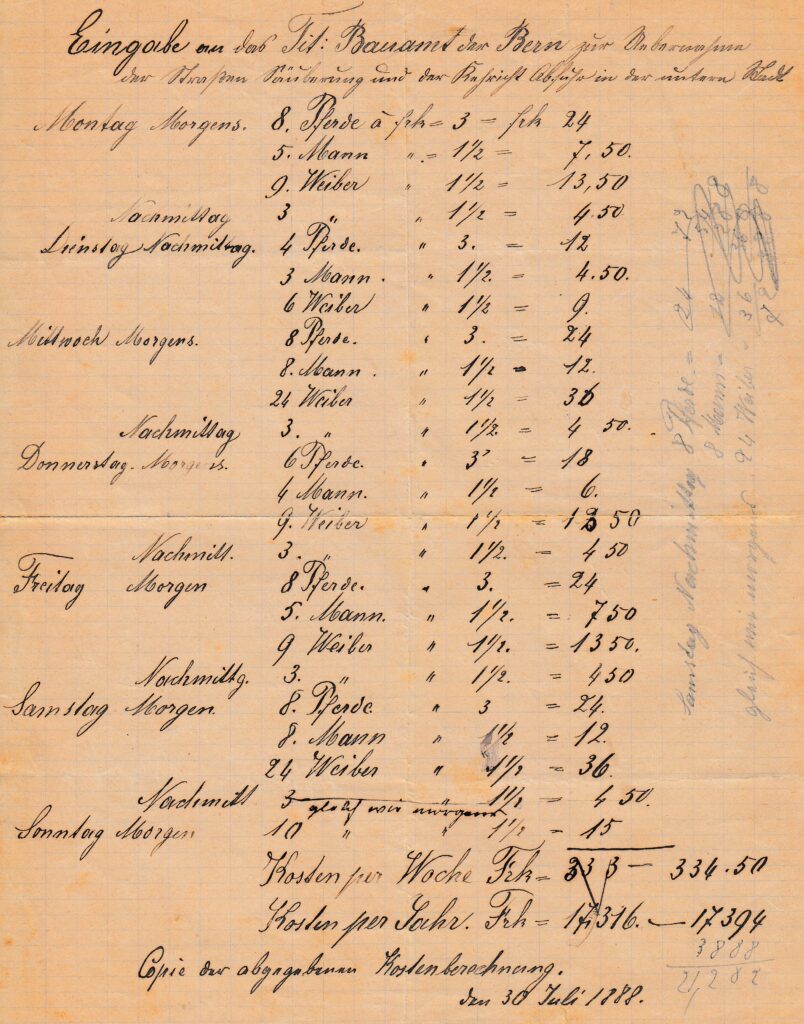 Eingabe an das Tit: Bauamt der Bern zur Uebernahme
der Straßen Säuberung und der Kehricht Abfuhr in der untern Stadt
Montag Morgens. 8. Pferde à frk = 3 = frk 24
5. Mann " = 1 1/2 = 7,50.
9. Weiber " 1 1/2 = 13,50
Nachmittag 3 " " 1 1/2 = 4.50
Dienstag Nachmittag. 4 Pferde. " 3. = 12
3 Mann. " 1 1/2. = 4.50.
6 Weiber " 1 1/2 = 9.
Mittwoch Morgens. 8 Pferde. " 3. = 24
8. Mann. " 1 1/2 = 12.
24 Weiber " 1 1/2 = 36
Nachmittag 3. " " 1 1/2. = 4 50.
Donnerstag. Morgens. 6 Pferde. " 3 = 18
4 Mann. " 1 1/2 = 6.
9. Weiber " 1 1/2 = 13 50
Nachmitt. 3. " " 1 1/2. = 4 50
Freitag Morgen 8 Pferde. " 3. = 24
5. Mann. " 1 1/2. = 7 50
9 Weiber " 1 1/2. = 13 50.
Nachmittg. 3. " " 1 1/2. = 4 50
Samstag Morgen. 8. Pferde " 3 = 24.
8. Mann " 1 1/2 = 12.
24 Weiber " 1 1/2 = 36.
Nachmitt 3 " 1 1/2 = 4 50.
gleich wie morgens
Sonntag Morgen 10 " " 1 1/2 = 15
Kosten per Woche Frk = 333 — 334.50
Kosten per Jahr. Frk = 17,316. — 17394
3888
21,282
Copie der abgegebenen Kostenberechnung.
den 30 Juli 1888.
Samstag Nachmittag 8 Pferde = 24
8 Mann = 12
24 Weiber = 36
72
gleich wie morgens